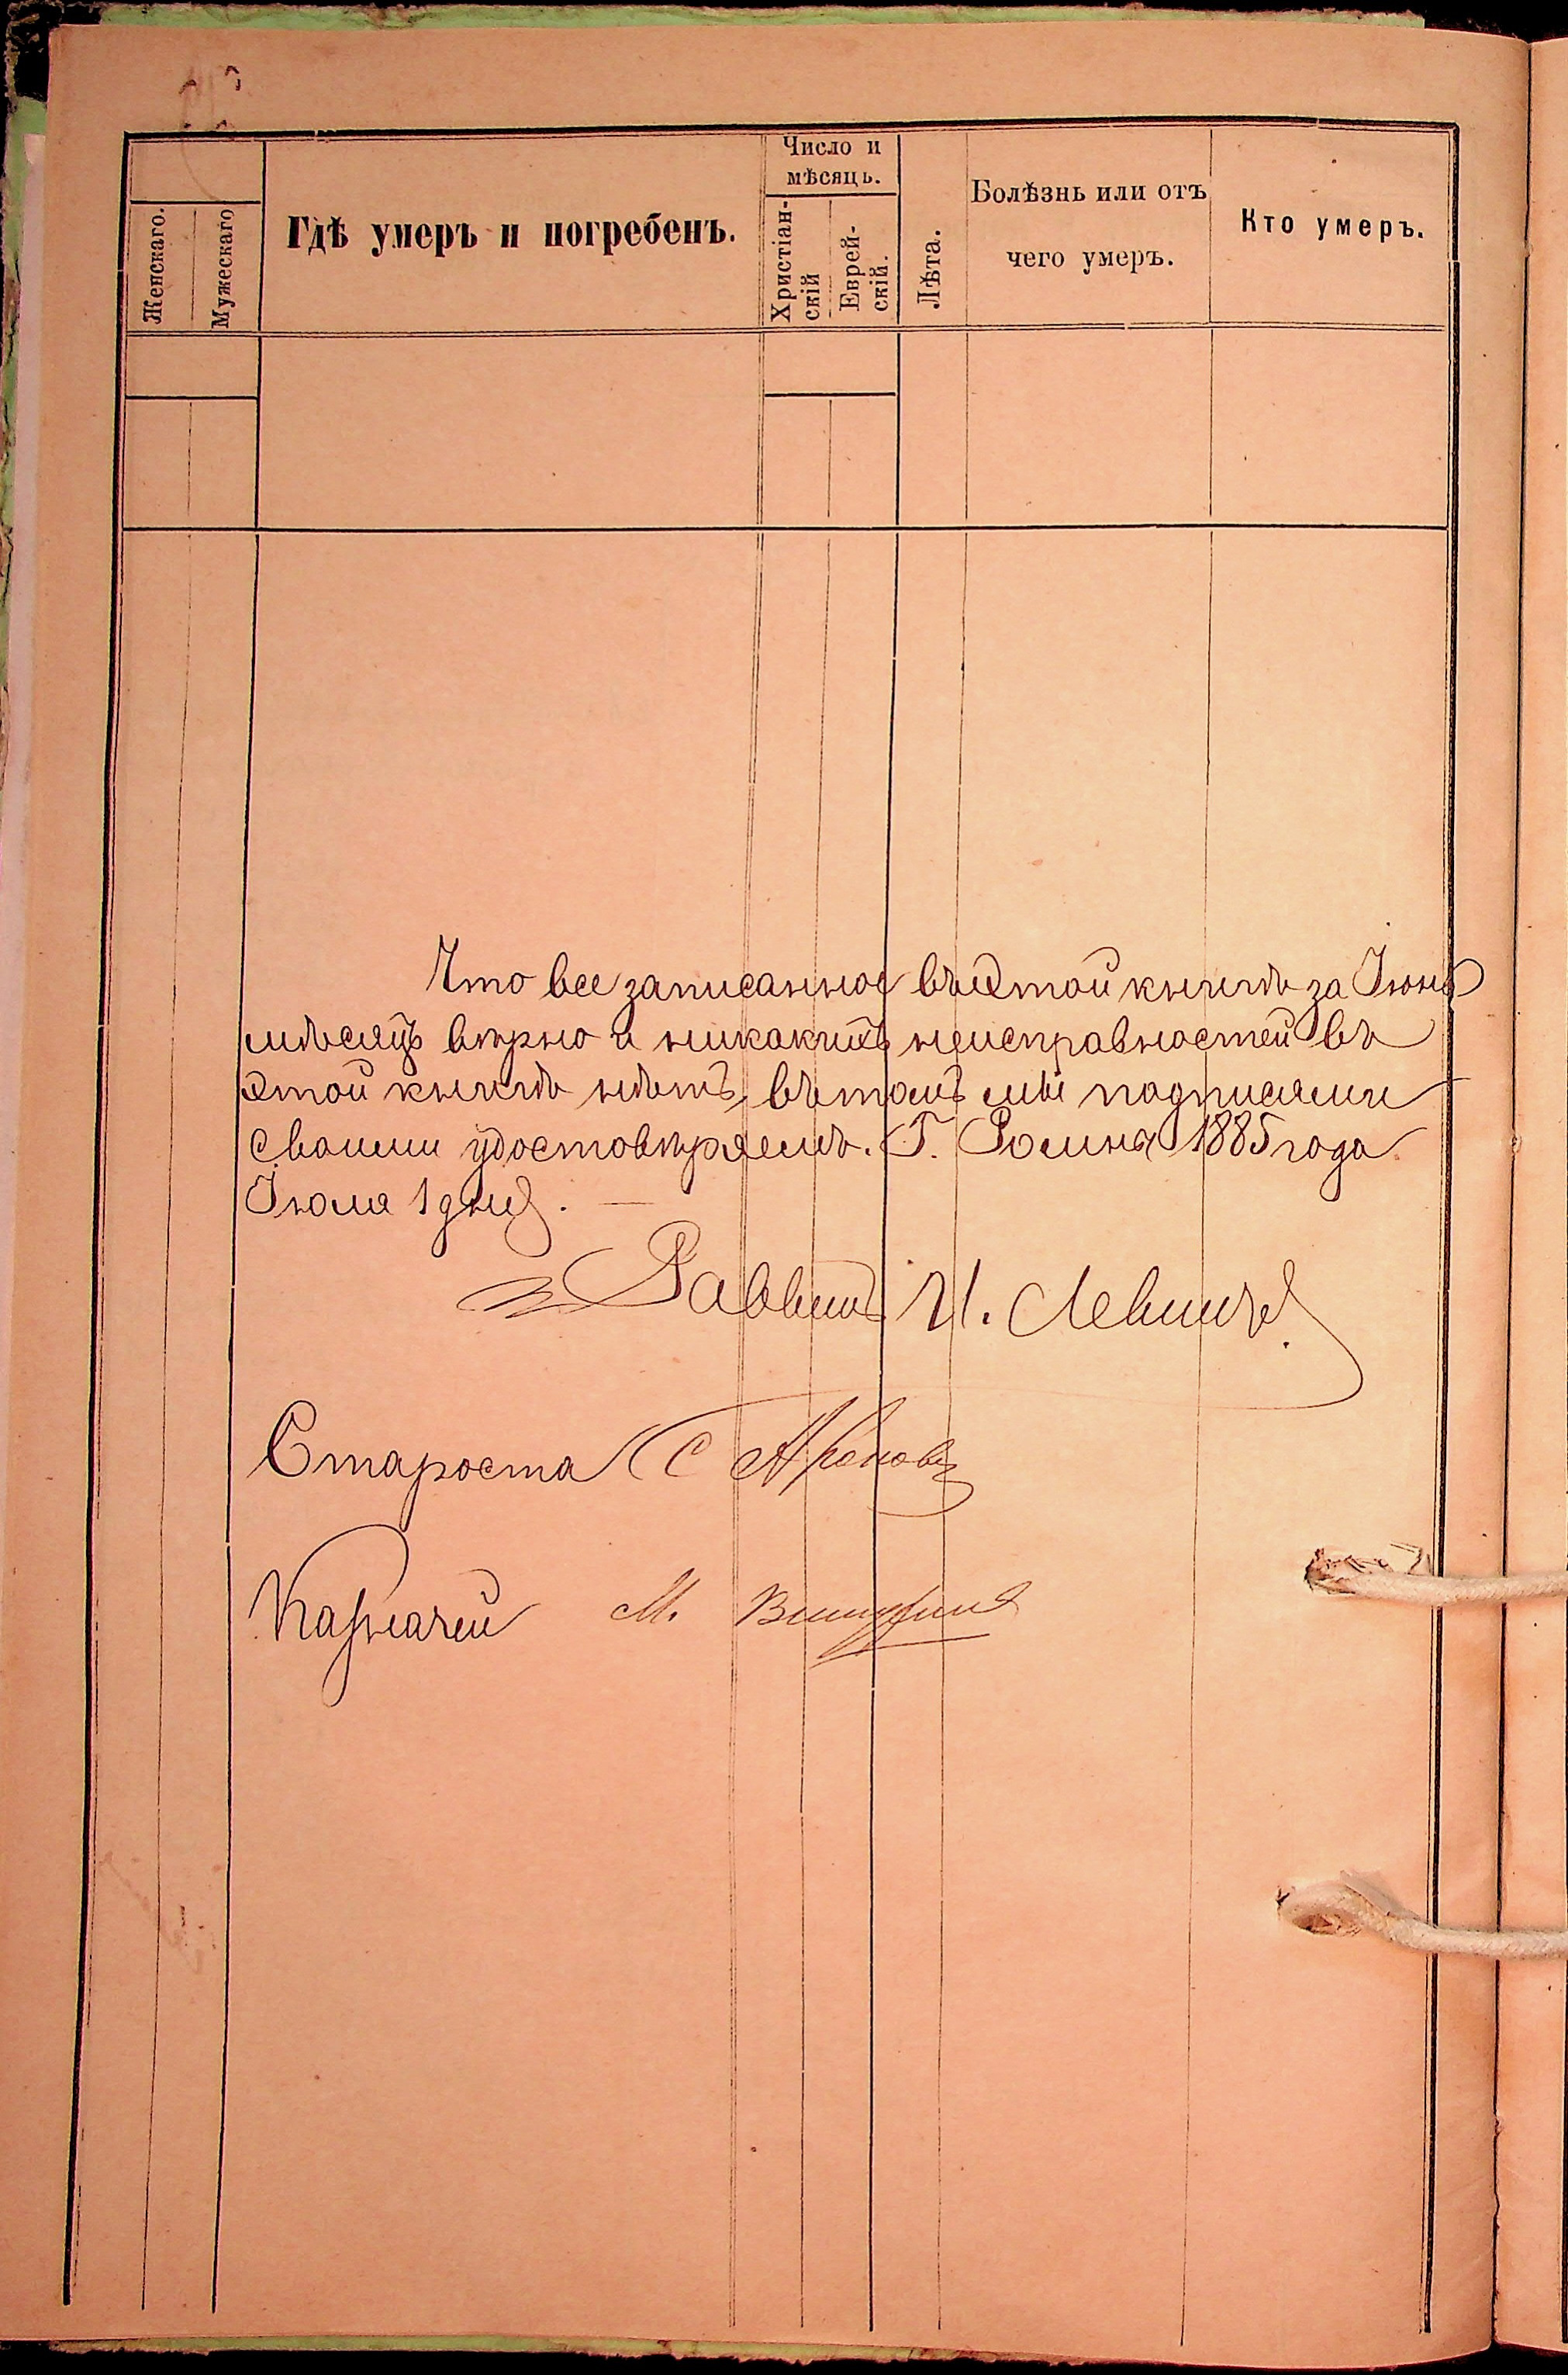 Женскаго.
Мужескаго
Гдѣ умеръ и погребенъ.
Число и
мѣсяцъ.
Христіан-
скій
Еврей-
скій.
Лѣта.
Болѣзнь или отъ
чего умеръ.
Кто умеръ.
Что все записанное въ этой книгѣ за Іюнь
мѣсяцъ вѣрно и никакихъ неисправностей въ
этой книгѣ нѣтъ, въ томъ мы подписями
своими удостовѣряемъ. Г. Ромны 1885 года
Іюля 1 дня. —
Раввинъ И.
Староста С Ароновъ
Казначей М.